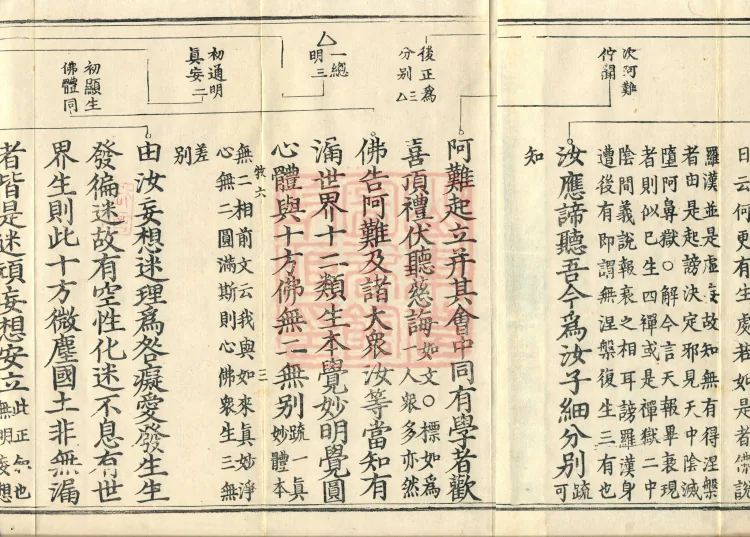 曰云何更有生處若如是者儒説
羅漢並是虛妄故知無有得涅槃
者由是起謗決定邪見天中陰滅
墮阿鼻獄○解今言天報畢衰現
者則似已生四禪或是禪獄二中
陰間義説報衰之相耳謗羅漢身
遭後有即謂無涅槃復生三有也
次阿難
佇聞
汝應諦聽吾今為汝子細分別疏可
知
後正為
分別三
阿難起立并其會中同有學者歡
喜頂禮伏聽慈誨如文○標如為
一人衆多亦然
佛告阿難及諸大衆汝等當知有
一總
明三
漏世界十二類生本覺妙明覺圓
心體與十方佛無二無别疏一真
妙體本
無二相前文云我與如來真妙淨
心無二圓滿斯則心佛衆生三無
差
别
初通明
真妄二
由汝妄想迷理為咎癡愛發生生
發徧迷故有空性化迷不息有世
初顯生
佛體同
界生則此十方微塵國土非無漏
者皆是迷頑妄想安立此正
無明妄想